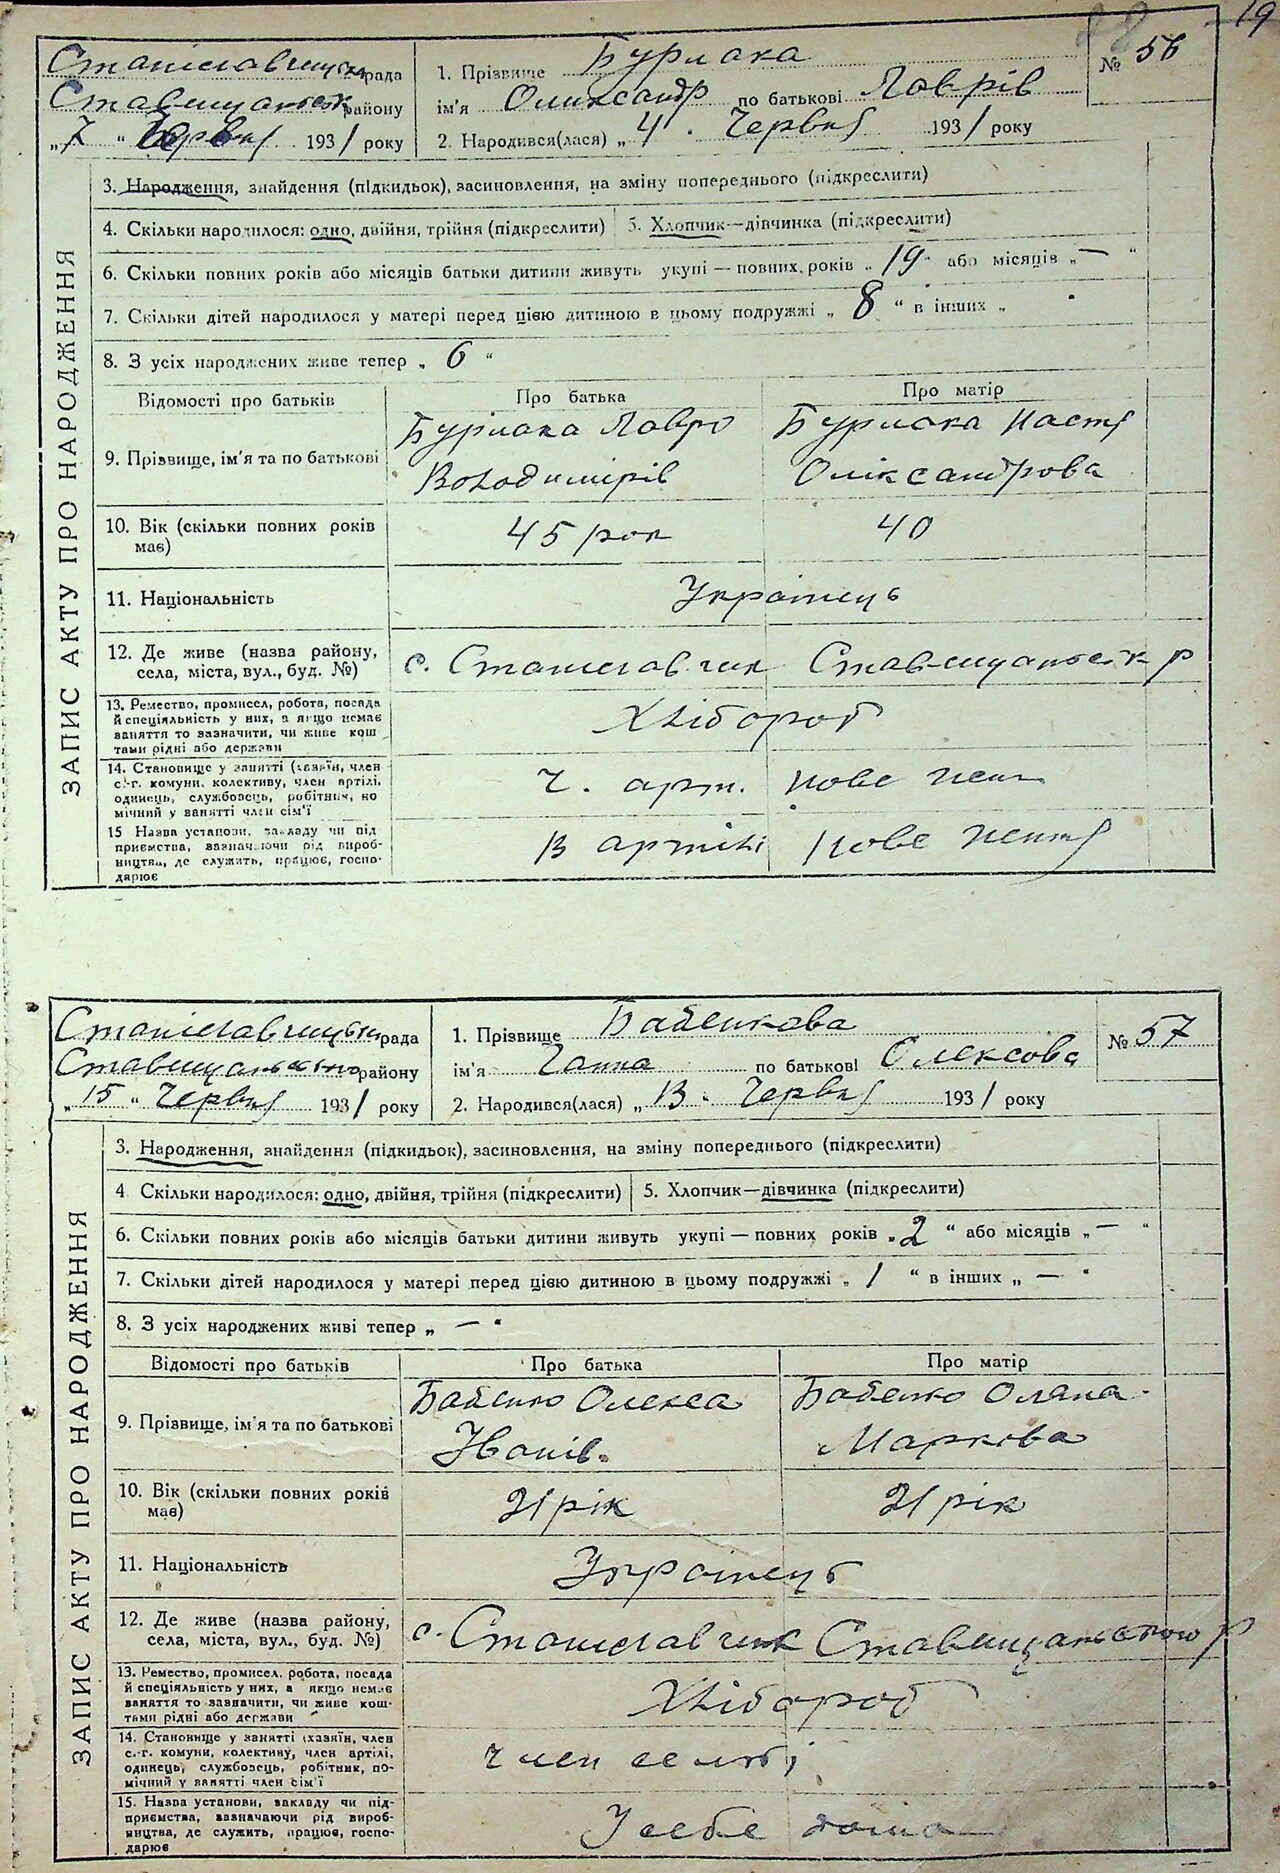 19
88
Станіславчицька рада
Ставищанськ району
„7 “ Червня 1931 року
1. Прізвище Бурлака
ім'я Олександр по батькові Лаврів
2. Народився(лася) „ 4 “ Червня 1931 року
№ 56
ЗАПИС АКТУ ПРО НАРОДЖЕННЯ
3. Народження, знайдення (підкидьок), засиновлення, на зміну попереднього (підкреслити)
4. Скільки народилося: одно, двійня, трійня (підкреслити) 5. Хлопчик—дівчинка (підкреслити)
6. Скільки повних років або місяців батьки дитини живуть укупі — повних років „ 19 “ або місяців „ — “
7. Скільки дітей народилося у матері перед цією дитиною в цьому подружжі „ 8 “ в інших „
8. З усіх народжених живе тепер „ 6 “
Відомості про батьків Про батька Про матір
9. Прізвище, ім'я та по батькові
Бурлака Лавро Бурлака Настя
Володимирів Оліксандрова
10. Вік (скільки повних років має) 45 рок 40
11. Національність Українець
12. Де живе (назва району,
села, міста, вул., буд. №) с. Станіславчик Ставищанськ р
13. Ремество, промисел, робота, посада
й спеціяльність у них, а якщо немає
заняття то зазначити, чи живе кош
тами рідні або держави
Хлібороб
14. Становище у занятті (хазяїн, член
с.-г. комуни, колективу, член артілі,
одинець, службовець, робітник, по
мічний у занятті член сім'ї
ч. арт.
15 Назва установи, закладу чи під
приємства, зазначаючи рід вироб-
ництва, де служить, працює, госпо-
дарює
В артілі
Станіславчицька рада
Ставищанського району
„ 15 “ Червня 1931 року
1. Прізвище Бабенкова
ім'я Ганна по батькові Олексова
2. Народився(лася) „ 13 “ Червня 1931 року
№ 57
ЗАПИС АКТУ ПРО НАРОДЖЕННЯ
3. Народження, знайдення (підкидьок), засиновлення, на зміну попереднього (підкреслити)
4 Скільки народилося: одно, двійня, трійня (підкреслити) 5. Хлопчик—дівчинка (підкреслити)
6. Скільки повних років або місяців батьки дитини живуть укупі — повних років „ 2 “ або місяців „ — “
7. Скільки дітей народилося у матері перед цією дитиною в цьому подружжі „ 1 “ в інших „ — “
8. З усіх народжених живі тепер „ — “
Відомості про батьків Про батька Про матір
9. Прізвище, ім'я та по батькові
Бабенко Олекса Бабенко Оляна
Іванів. Маркова
10. Вік (скільки повних років має) 21 рік 21 рік
11. Національність Українець
12. Де живе (назва району,
села, міста, вул., буд. №) с. Станіславчик Ставищанського р
13. Ремество, промисел, робота, посада
й спеціяльність у них, а якщо немає
заняття то зазначити, чи живе кош-
тами рідні або держави
Хлібороб
14. Становище у занятті (хазяїн, член
с.-г. комуни, колективу, член артілі,
одинець, службовець, робітник, по-
мічний у занятті член сім'ї
член
15. Назва установи, закладу чи під-
приємства, зазначаючи рід вироб-
ництва, де служить, працює, госпо-
дарює
У себе дома